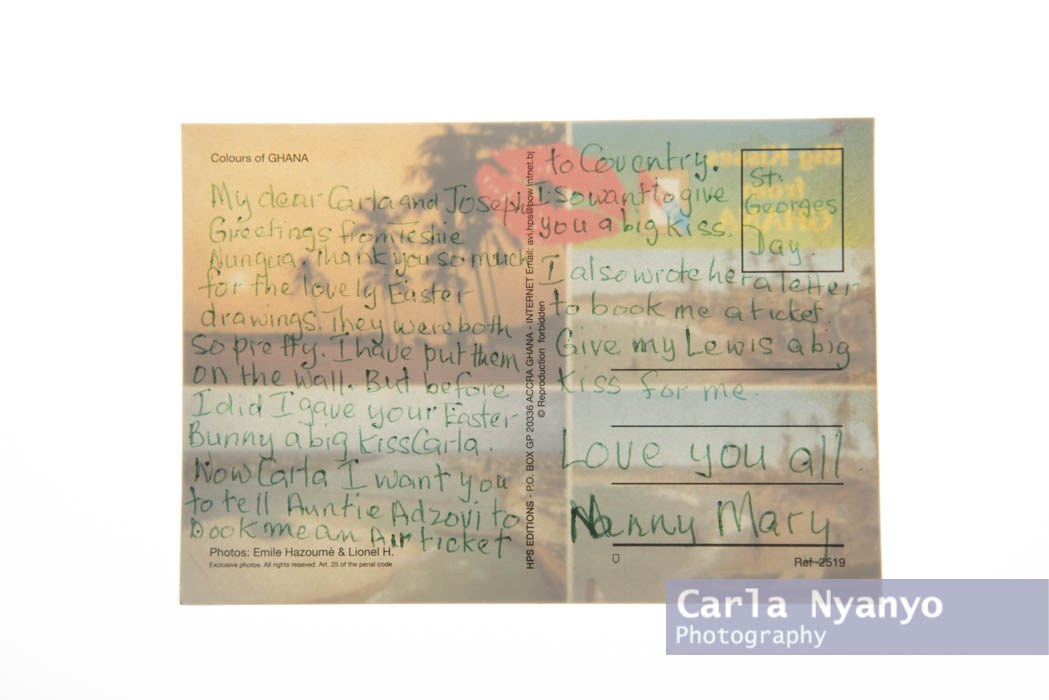 Colours of GHANA
My dear Carla and Joseph
Greetings from Teshie
Nungua. Thank you so much
for the lovely Easter
drawings. They were both
so pretty. I have put them
on the wall. But before
I did I gave your Easter
Bunny a big kiss Carla.
Now Carla I want you
to tell Auntie Adzovi to
book me an Air ticket
Photos: Emile Hazoumè & Lionel H.
Exclusive photos. All rights reseved. Art. 25 of the penal code
HPS EDITIONS - P.O. BOX GP 20336 ACCRA GHANA - INTERNET Email: avi.hps@bow.intnet.bj
© Reproduction forbidden
to Coventry.
I so want to give
you a big kiss.
I also wrote her a letter
to book me a ticket.
Give my Lewis a big
kiss for me.
Love you all.
Nanny Mary
St.
Georges
Day
Big Kisses
from
GHANA
Réf 2519
Carla Nyanyo
Photography